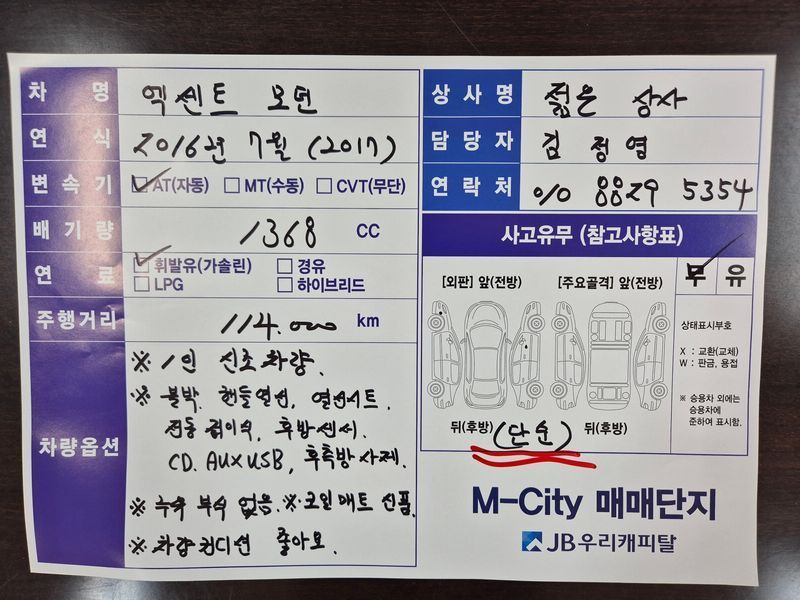 차 명 엑센트 모던
연 식 2016년 7월 (2017)
변 속 기 ☑AT(자동) □MT(수동) □CVT(무단)
배 기 량 1368 CC
연 료 ☑휘발유(가솔린) □경유
□LPG □하이브리드
주행거리 114.000 km
차량옵션
※ 1인 신조차량.
※ 블박. 핸들열선, 열선시트.
전동접이식, 후방센서.
CD. AUX USB, 후측방 사제.
※ 누유 부식 없음. ※ 코일매트 신품.
※ 차량컨디션 좋아요.
상 사 명 젊은 상사
담 당 자 김 정 영
연 락 처 010 8829 5354
사고유무 (참고사항표)
[외판] 앞(전방) [주요골격] 앞(전방)
뒤(후방) (단순) 뒤(후방)
무 유
상태표시부호
X : 교환(교체)
W : 판금, 용접
※ 승용차 외에는
승용차에
준하여 표시함.
M-City 매매단지
JB우리캐피탈